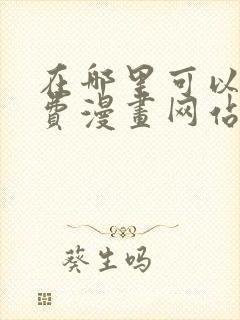 在哪里可以
费漫畫网佔
葵生吗